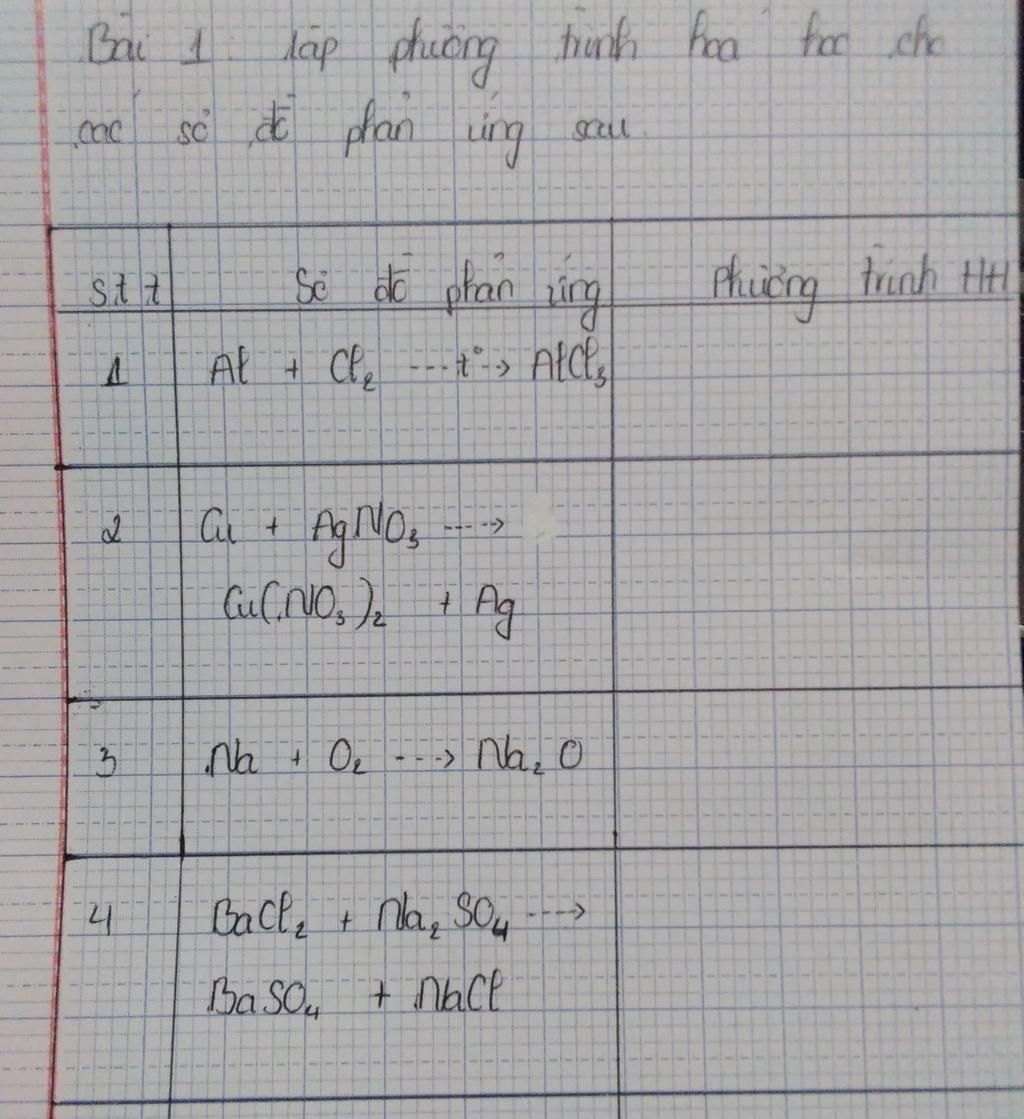 Bài 1. lập phương trình hoá học cho
các sơ đồ phản ứng sau
stt Sơ đồ phản ứng Phương trình HH
1 Al + Cl₂ ---t°-> AlCl₃
2 Cu + AgNO₃ ---->
Cu(NO₃)₂ + Ag
3 Na + O₂ ---> Na₂O
4 BaCl₂ + Na₂SO₄ ---->
BaSO₄ + NaCl